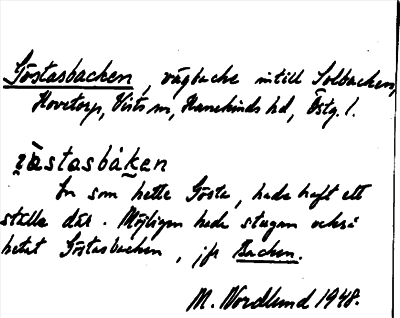 Göstasbacken, vägbacke intill Solbacken,
Hovetorp, Vists sn, Hanekinds hd, Östg. l.
jästasbákan
En som hette Gösta, hade haft ett
ställe där. Möjligen hade stugan också
hetat Göstasbacken, jfr Backen.
M. Nordlund 1948.